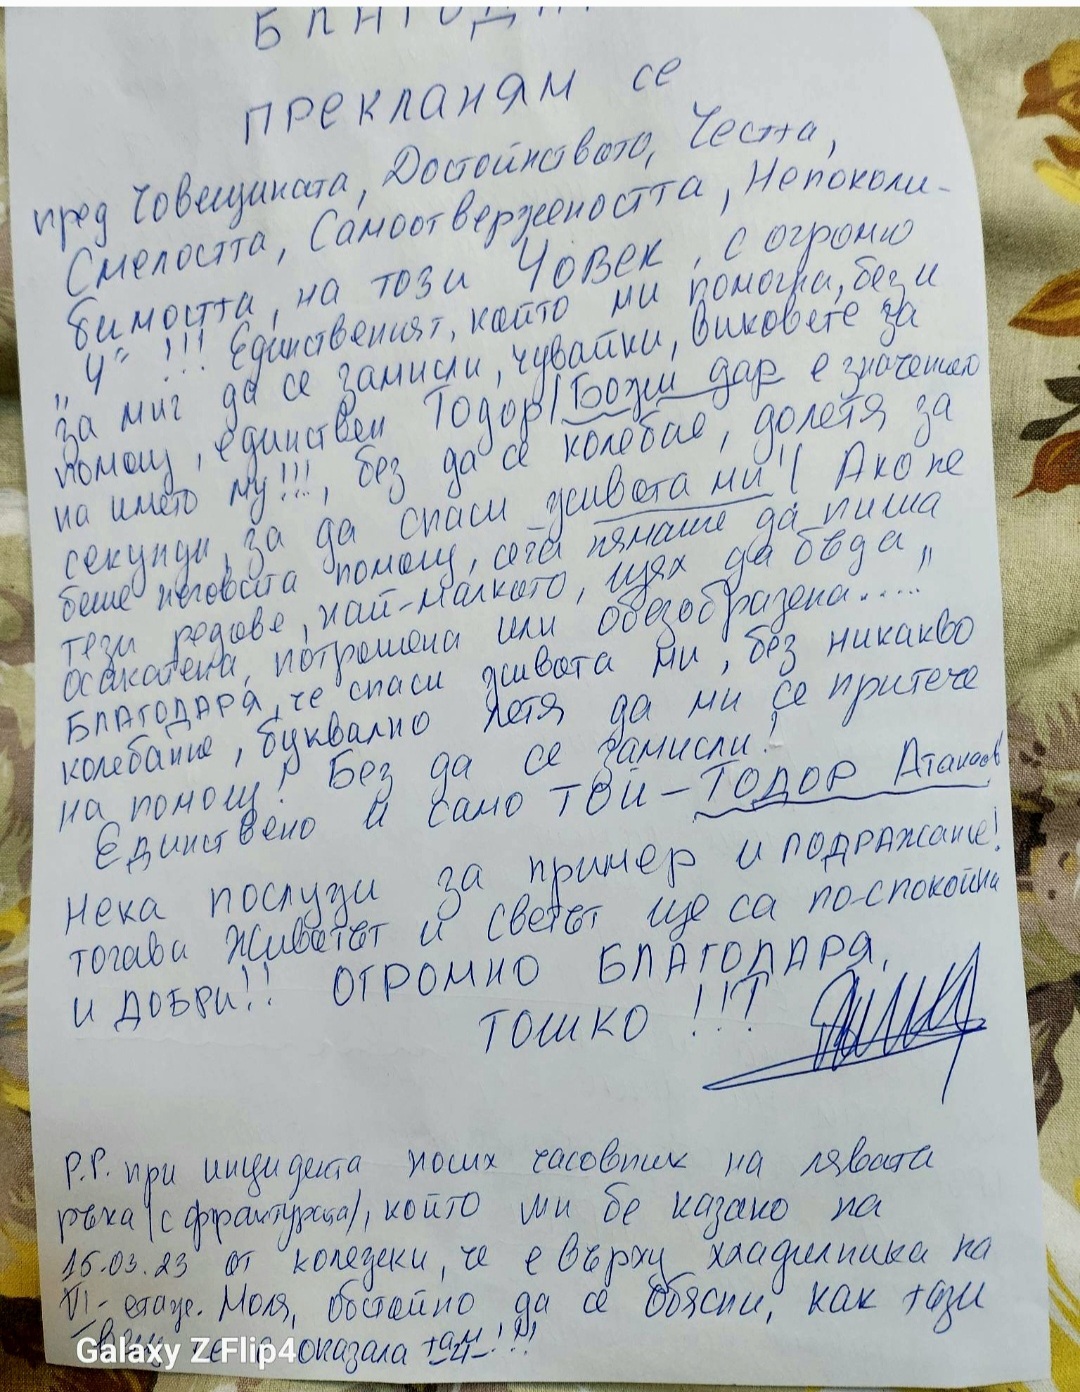 БЛАГОД
ПРЕКЛАНЯМ се
пред Човещината, Достойнството, Честта,
Смелостта, Самоотвержеността, Непоколи-
бимостта, на този ЧОВЕК, с огромно
"Ч" !!! Единственият, който ми помогна, без и
за миг да се замисли, чувайки, виковете за
помощ, единствен Тодор/Божи дар е значението
на името му!!!, без да се колебае, долетя за
секунди, за да спаси живота ми"! Ако не
беше неговата помощ, сега нямаше да пиша
тези редове, най-малкото, щях да бъда „
осакатена, потрошена или обезобразена....."
БЛАГОДАРЯ, че спаси живота ми, без никакво
колебание, буквално летя да ми се притече
на помощ! Без да се замисли!
Единствено и само ТОЙ - ТОДОР Атанасов
Нека послузи за пример и ПОДРАЖание!
тогава Животът и светът ще са по-спокойни
и ДОБРИ!! ОГРОМНО БЛАГОДАРЯ,
ТОШКО !!!
P.P. при инцидента носих часовник на лявата
ръка (с фрактурата), който ми бе казано на
15.03.23 от колежки, че е върху хладилника на
VI- етаж. Моля, обстойно да се обясни, как тази
се оказала там!!!
Galaxy Z Flip4